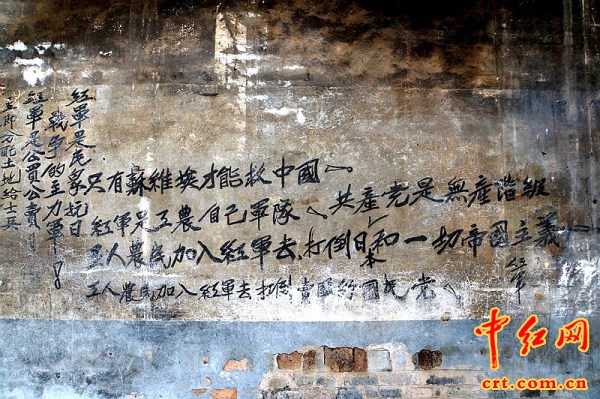 紅軍是民眾抗日
戰争的主力軍！
紅軍是公買公賣！
立即分配土地給士兵
只有蘇維埃才能救中國
紅軍是工農自己軍隊、共產党是無產階級
工人農民加入紅軍去,打倒日本和一切帝國主義
工人農民加入紅軍去打倒賣國的國民党
紅軍
中红网
crt.com.cn